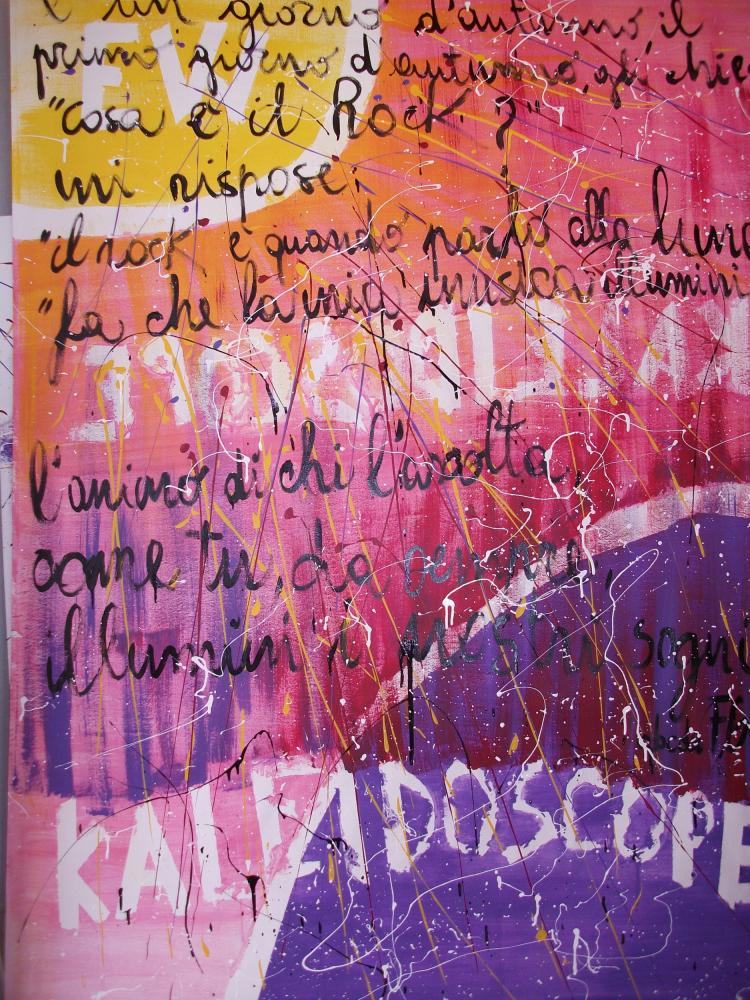 E un giorno d'autunno il
primo giorno d'autunno, gli chie
EW
"cosa è il Rock?"
mi rispose:
"il rock è quando parlo alla luna
"fa che la mia musica illumini
l'animo di chi l'ascolta,
come tu, da sempre,
illumini i nostri sogni
KALEIDOSCOPE